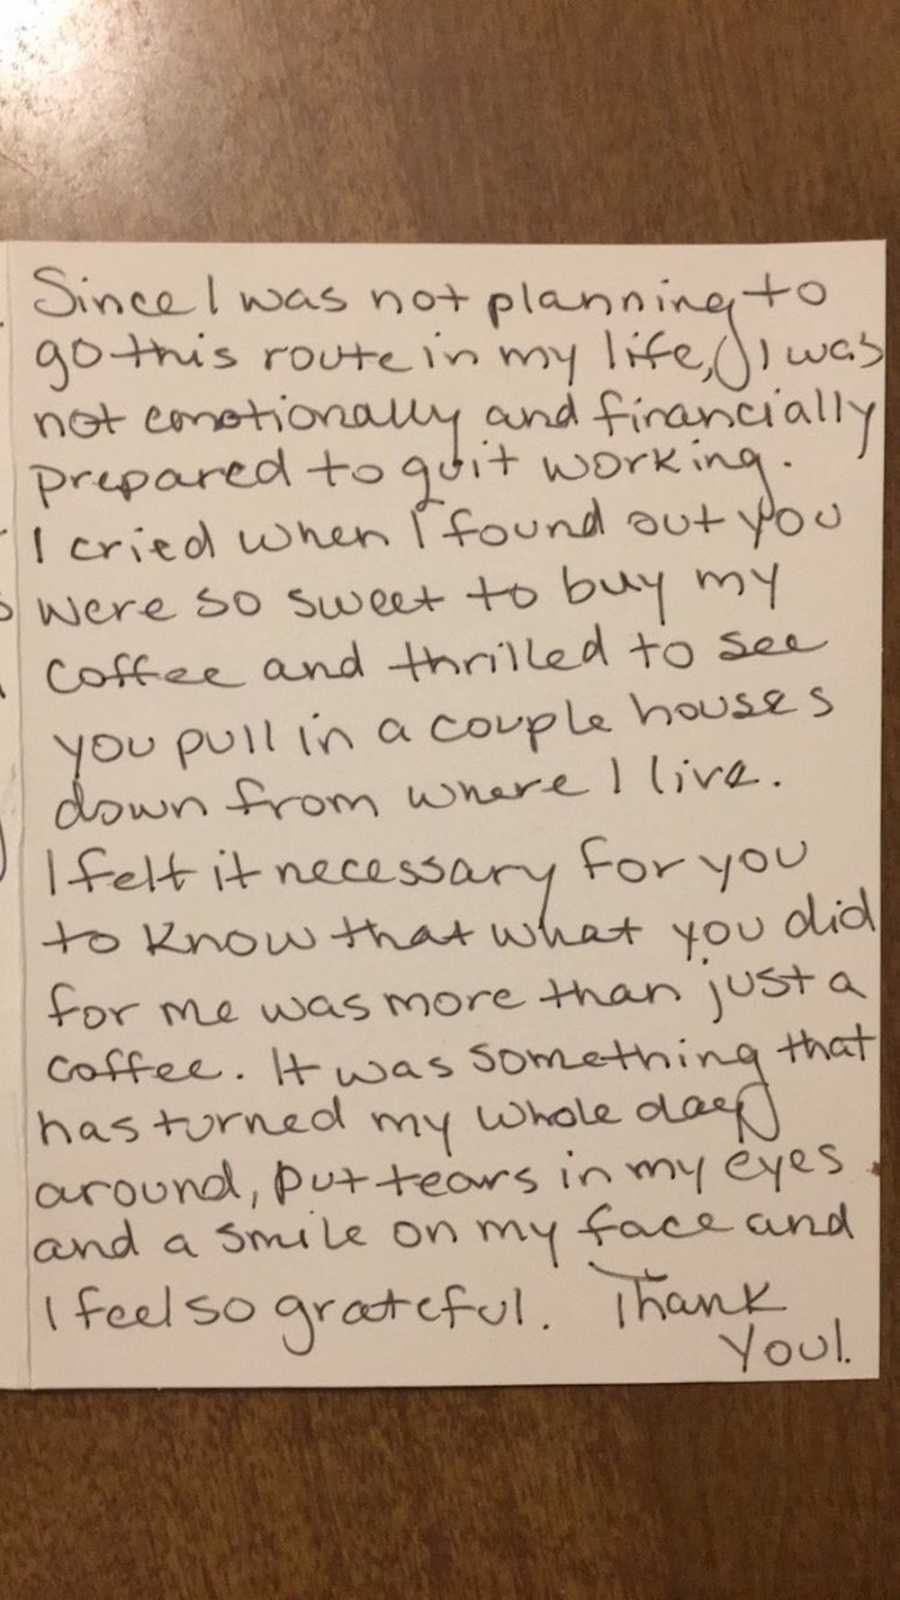 Since I was not planning to
go this route in my life, I was
not emotionally and financially
prepared to quit working.
I cried when I found out you
were so sweet to buy my
coffee and thrilled to see
you pull in a couple houses
down from where I live.
I felt it necessary for you
to know that what you did
for me was more than just a
coffee. It was something that
has turned my whole day
around, put tears in my eyes
and a smile on my face and
I feel so grateful. Thank
You!.